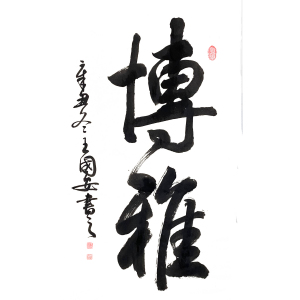 博雅
辛丑冬王國安書之